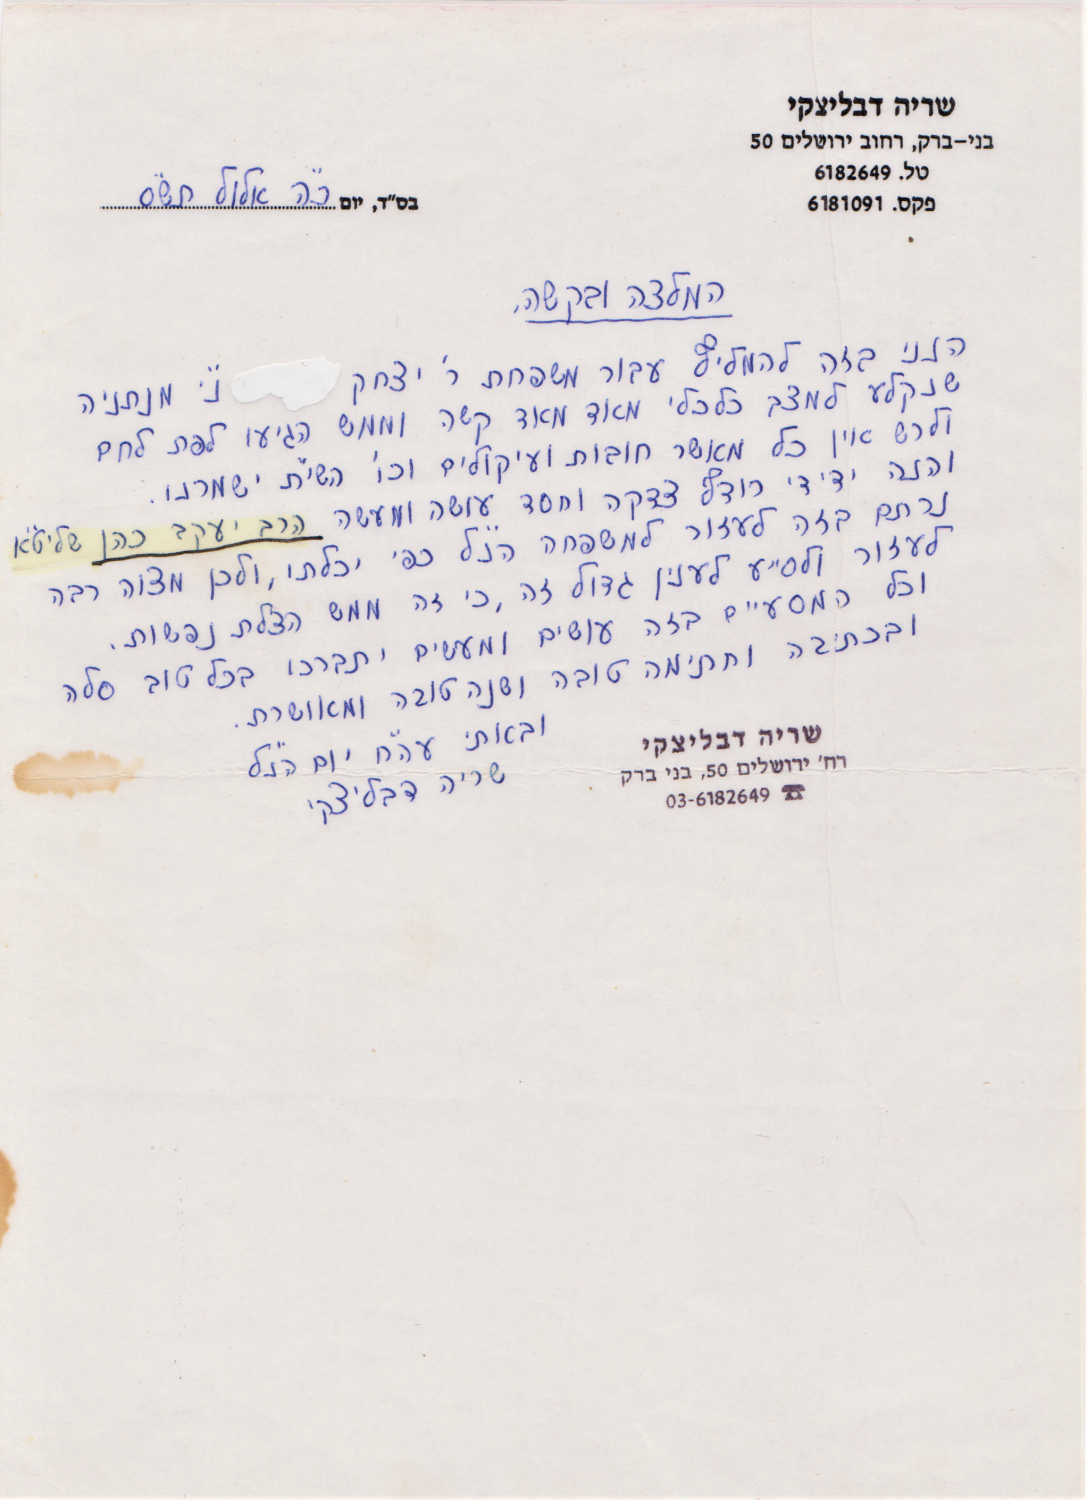 שריה דבליצקי
בני-ברק, רחוב ירושלים 50
טל. 6182649
פקס. 6181091
בס"ד, יום כ"ה אלול תש"ס
המלצה ובקשה.
הנני בזה להמליץ עבור משפחת ר' יצחק נ"י מנתניה
שנקלע למצב כלכלי מאוד מאוד קשה וממש הגיעו לפת לחם
ולרש אין כל מאשר חובות ועיקולים וכו' השי"ת ישמרנו.
והנה ידידי רודף צדקה וחסד עושה ומעשה הרב יעקב כהן שליט"א
נרתם בזה לעזור למשפחה הנ"ל כפי יכלתו, ולכן מצוה רבה
לעזור ולסייע לענין גדול זה, כי זה ממש הצלת נפשות.
וכל המסעיים בזה עושים ומעשים יתברכו בכל טוב סלה
ובכתיבה וחתימה טובה ושנה טובה ומאושרת.
ובאתי עה"ח יום הנ"ל
שריה דבליצקי
שריה דבליצקי
רח' ירושלים 50, בני ברק
☎ 03-6182649